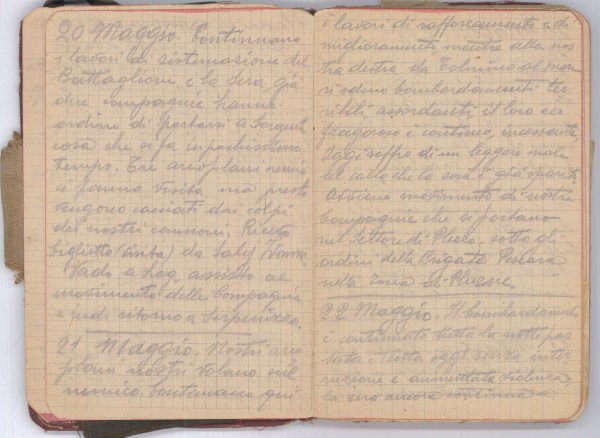 20 Maggio. Continuano
i lavori di sistemazione del
Battaglione e la sera, già
due compagnie hanno
ordine di portarsi a
cosa che si fa in pochissimo
tempo. Tre areoplani nemici
ci fanno visita ma presto
vengono cacciati dai colpi
dei nostri cannoni. Ricevo
biglietto (visita) da
Vado a assisto al
movimento delle Compagnie
e vedi ritorno a
21 Maggio. Nostri areo
plani nostri volano sul
nemico. Continuano qui
i lavori di rafforzamento e di
miglioramento mentre alla nos
tra destra da Tolmino al mare
si odono bombardamenti ter
ribili assordanti, il loro è
fragoroso e continuo, incessante.
Oggi soffro di un leggero male
al collo che la sera è già sparito.
Avviene movimento di nostre
Compagnie che si portano
nel settore di Plezzo, sotto gli
ordini della Brigata Pescara
nella zona
22 Maggio. Il bombardamento
è continuato tutta la notte pas
sata e tutta oggi senza inter
ruzione e aumentata violenza,
la sera ancora continua